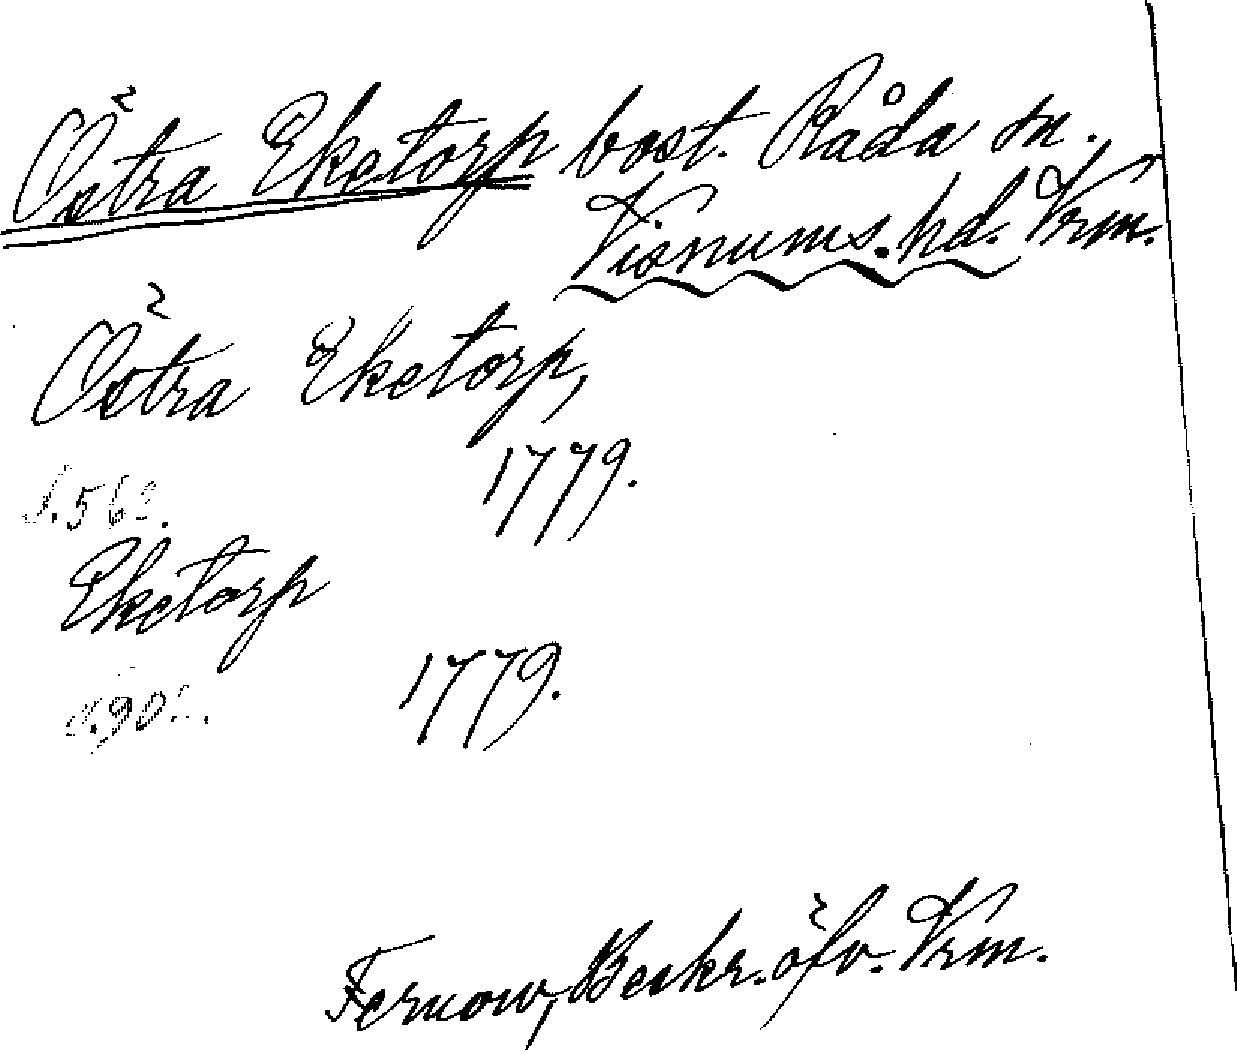 Östra Eketorp bost. Råda sn.
Visnums. hd. Vrm.
Östra Eketorp,
1779.
Eketorp
1779.
Fernow, Beskr. öfv. Vrm.